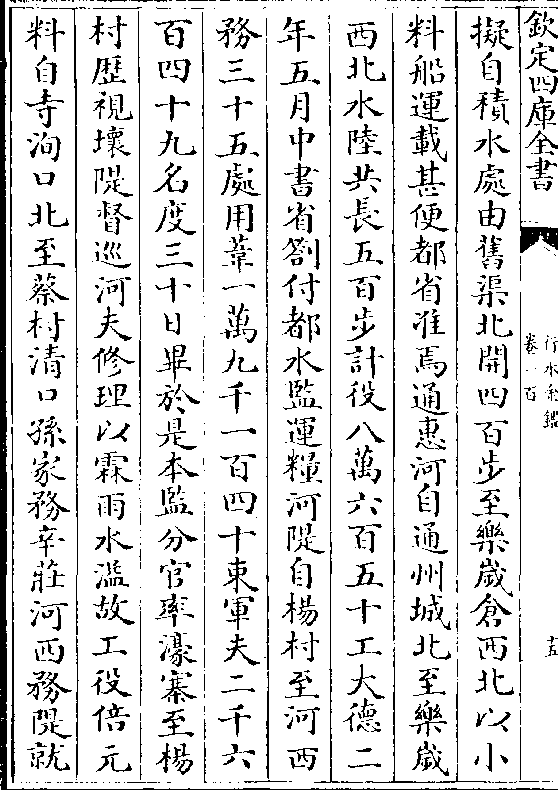 欽定四庫全書
行水金鑑
卷一百
十五
擬自積水處由舊渠北開四百步至樂歲倉西北以小
料船運載甚便都省准焉通惠河自通州城北至樂歲
西北水陸共長五百步計役八萬六百五十工大德二
年五月中書省劄付都水監運糧河隄自楊村至河西
務三十五處用葦一萬九千一百四十束軍夫二千六
百四十九名度三十日畢於是本監分官率濠寨至楊
村歷視壞隄督巡河夫修理以霖雨水溢故工役倍元
料自寺洵口北至蔡村清口孫家務辛莊河西務隄就